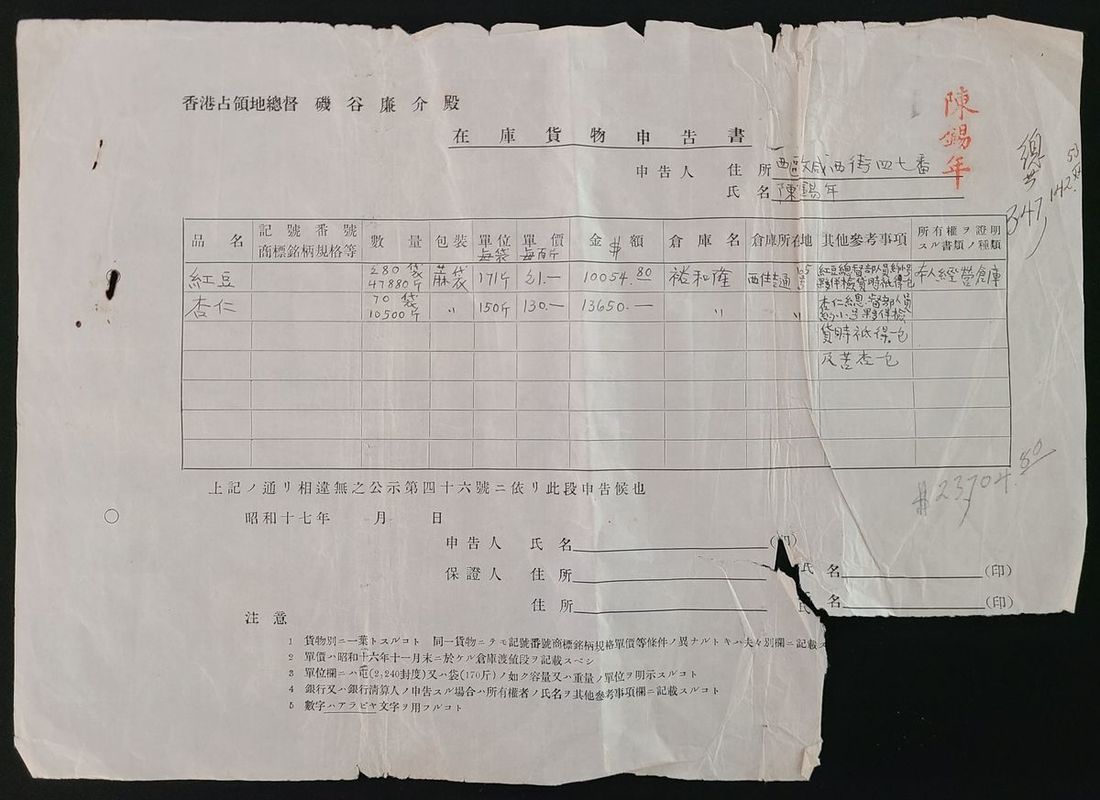 香港占領地總督 磯谷廉介殿
在庫貨物申告書
陳錫年
申告人 住所 西區文咸西街四七番
氏名 陳錫年
總共
品名 記號番號商標銘柄規格等 數量 包裝 單位每袋 單價每百斤 金$額 倉庫名 倉庫所在地 其他參考事項 所有權ヲ證明スル書類ノ種類
紅豆 280袋 47880斤 蔴袋 171斤 21.— 10054.80 裕和隆
杏仁 70袋 10500斤 〃 150斤 130.— 13650.— 〃 〃 杏仁總督部人員
貨時祇得一包
及苦杏一包
$23704.80
上記ノ通リ相違無之公示第四十六號ニ依リ此段申告候也
昭和十七年 月 日
申告人 氏名 (印)
保證人 住所 氏名 (印)
住所 氏名 (印)
注意
1 貨物別ニ一葉トスルコト 同一貨物ニテモ記號番號商標銘柄規格單價等條件ノ異ナルトキハ夫々別欄ニ記載ス
2 單價ハ昭和十六年十一月末ニ於ケル倉庫渡値段ヲ記載スベシ
3 單位欄ニハ屯(2,240封度)又ハ袋(170斤)ノ如ク容量又ハ重量ノ單位ヲ明示スルコト
4 銀行又ハ銀行清算人ノ申告スル場合ハ所有權者ノ氏名ヲ其他參考事項欄ニ記載スルコト
5 數字ハアラビヤ文字ヲ用フルコト